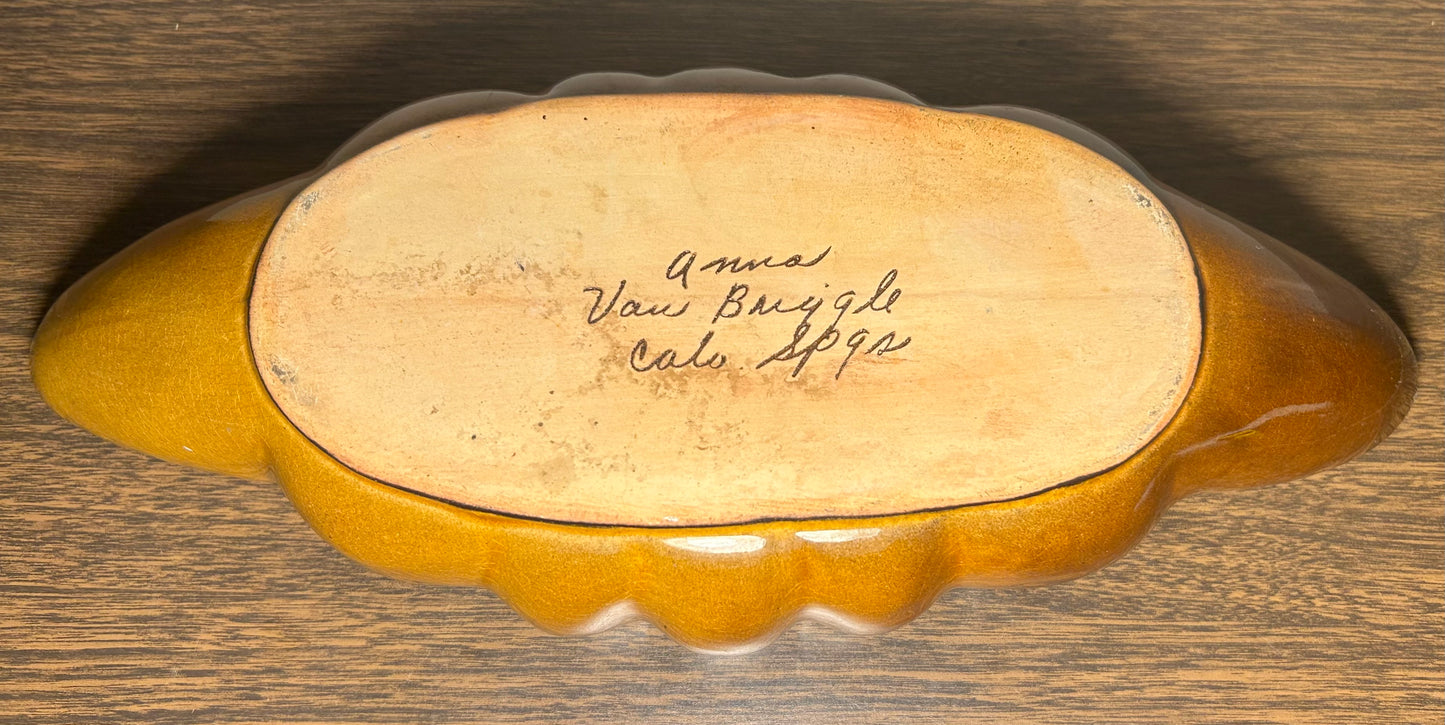 Anna
Van Briggle
Colo Spgs